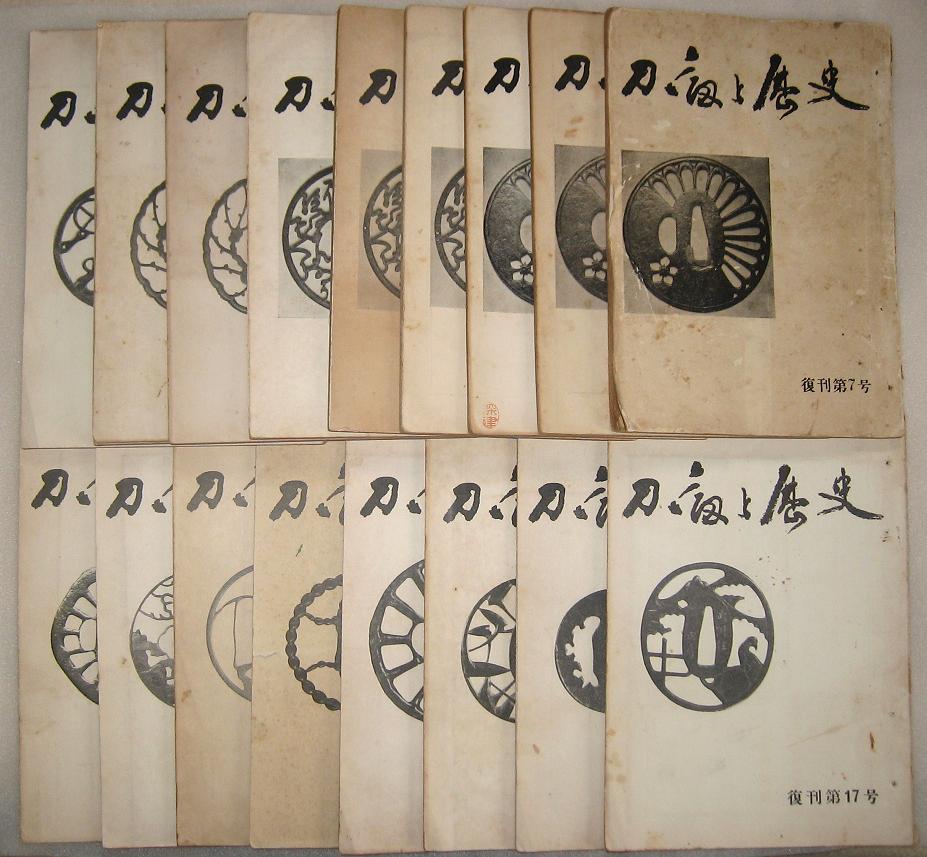 刀
刀
刀
刀
刀
刀
刀
刀
刀剣と歴史
復刊第7号
刀
刀
刀
刀
刀
刀
刀
刀剣と歴史
復刊第17号